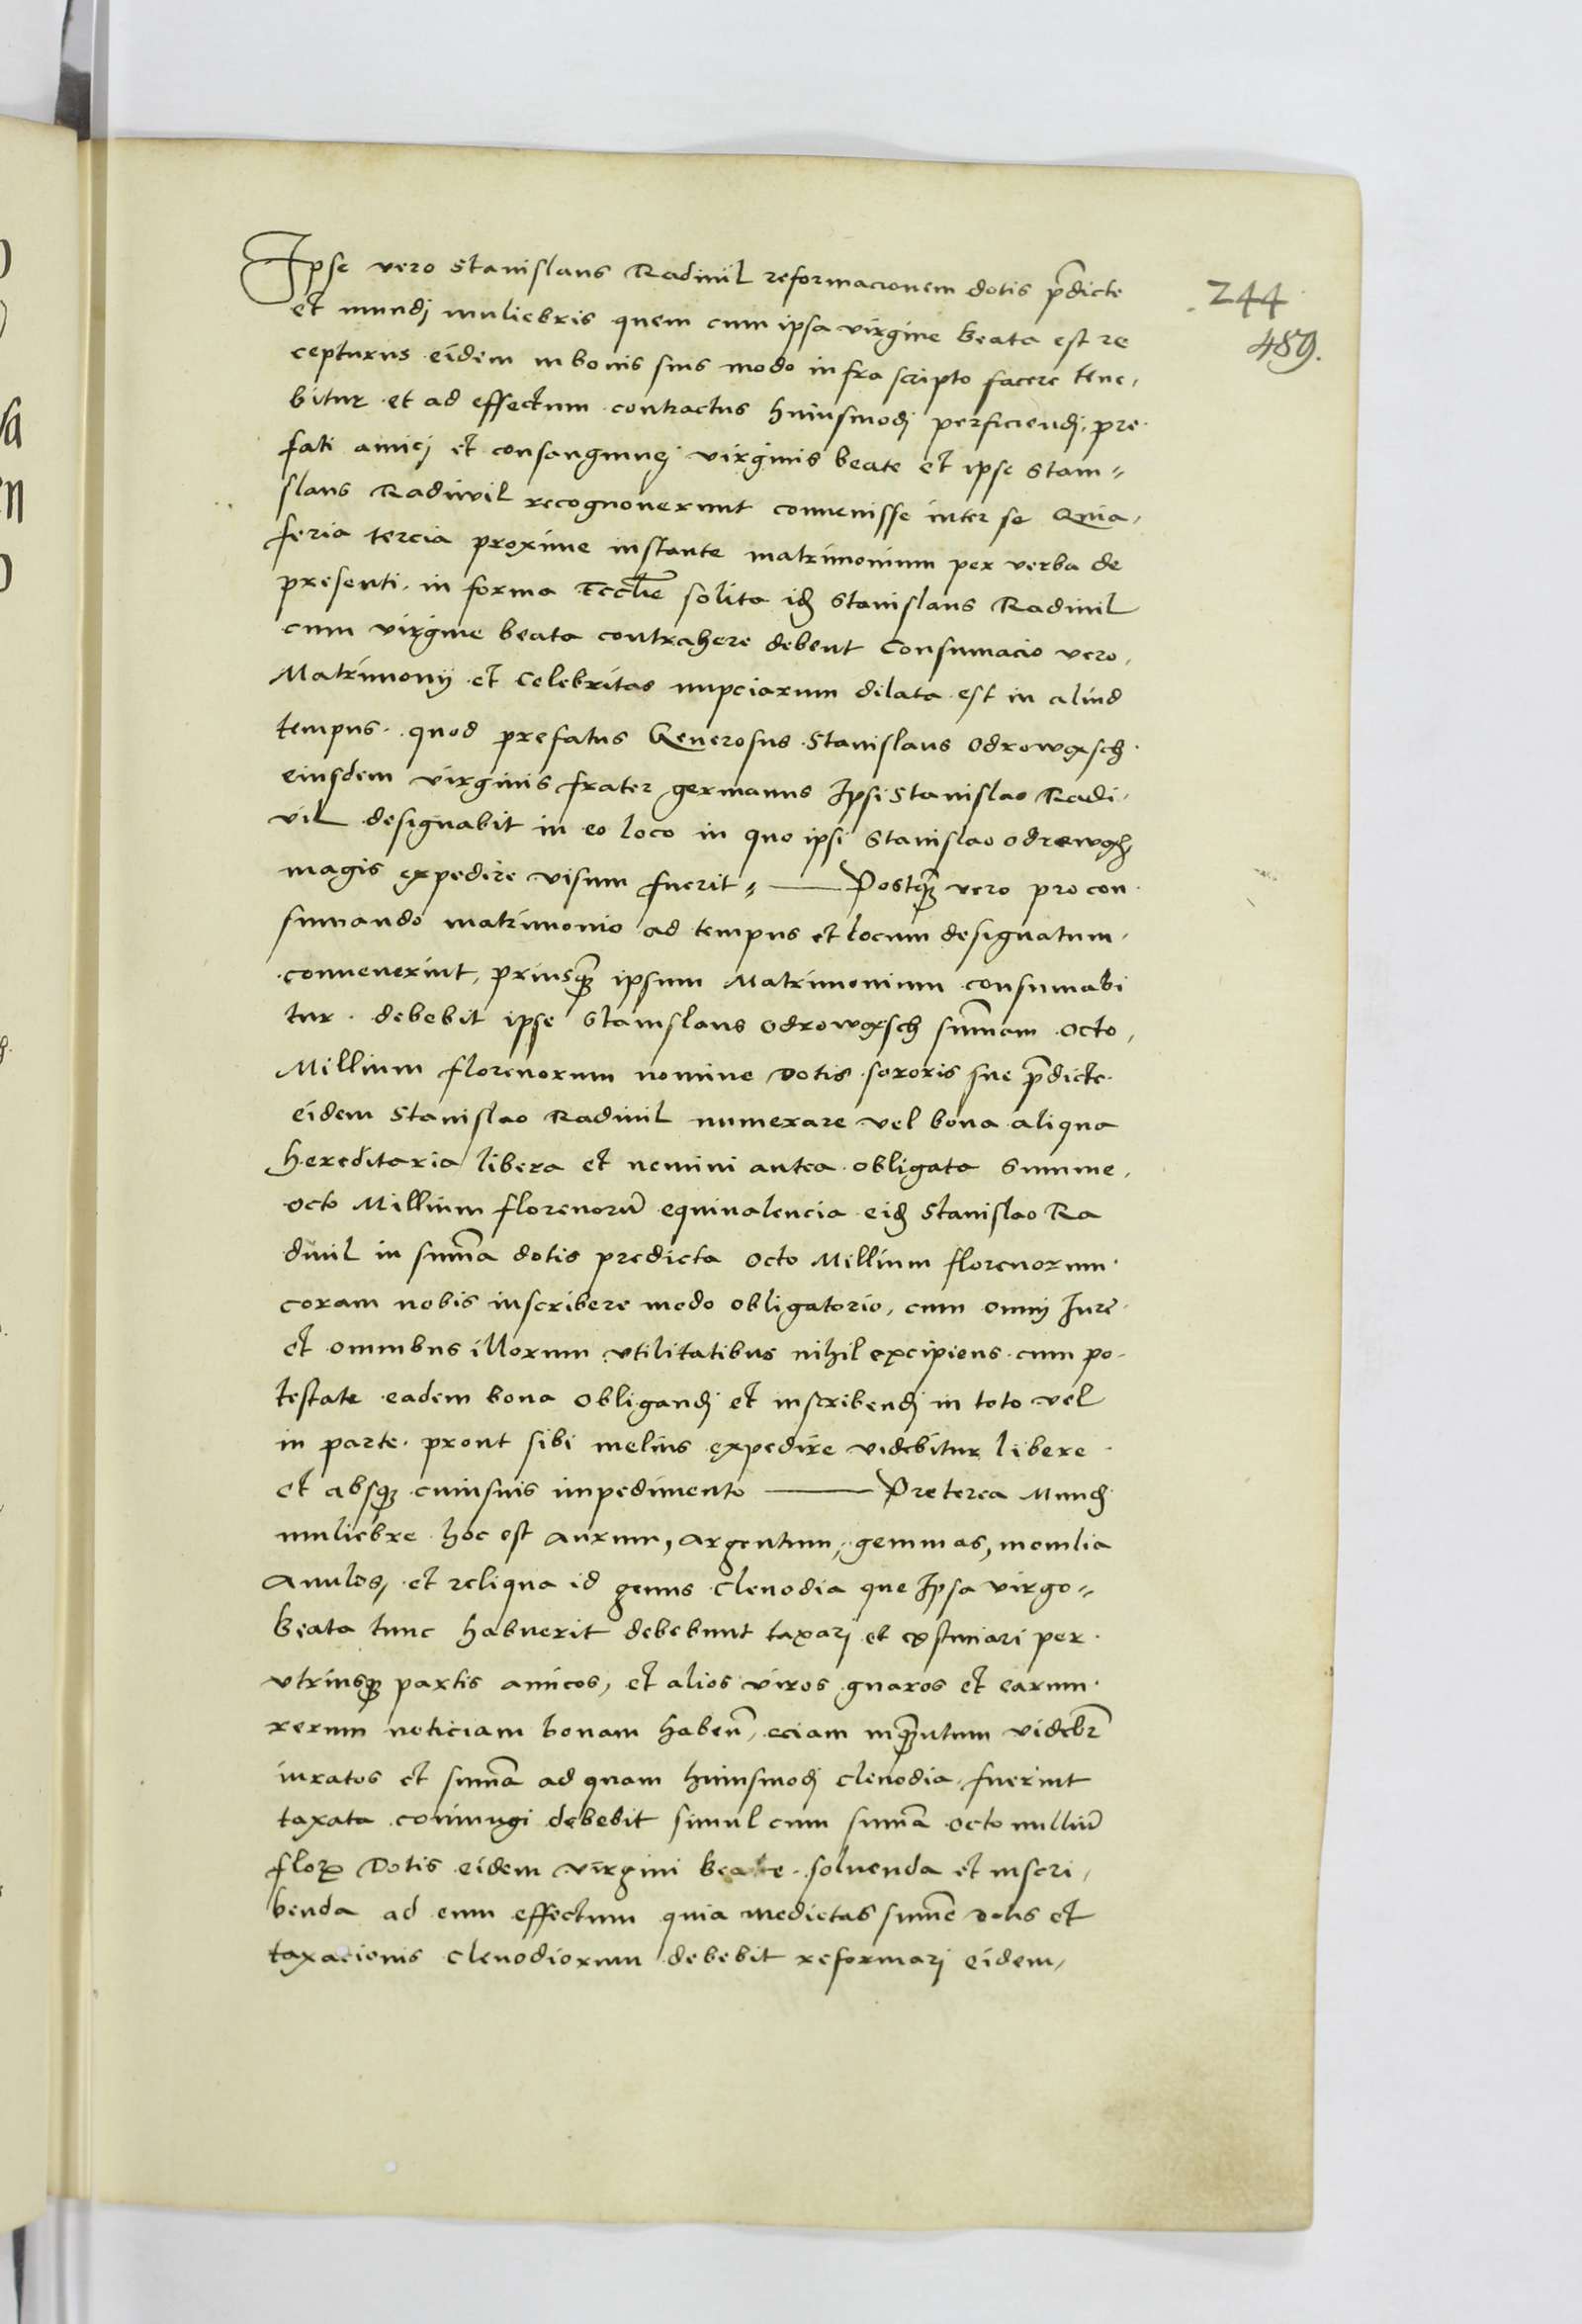 Ipse vero Stanislaus Radiuil reformacionem dotis p̄dicte
et mundj muliebris quem cum ipsa virgine beata est re
cepturus eidem in bonis suis modo infra scripto facere tene,
bitur et ad effectum contractus huiusmodj perficiendj. pre
fati amicj et consanguinej virginis beate et ipse Stani„
slaus Radiuil recognouerunt conuenisse inter se Quia,
feria tercia proxime instante matrimonium per verba de
presenti. in forma Eccl̄ie solita idē Stanislaus Radiuil
cum virgine beata contrahere debent Consumacio vero,
Matrimonij et Celebritas nupciarum dilata est in aliud
tempus. quod prefatus Generosus Stanislaus Odrowąsch.
eiusdem virginis frater germanus Ipsi Stanislao Radi,
vil designabit in eo loco in quo ipsi Stanislao Odrowąsch,
magis expedire visum fuerit„ —— Postq̄ vero pro con
sumando matrimonio ad tempus et locum designatum.
conuenerint, priusq̄ ipsum Matrimonium consumabi
tur. debebit ipse Stanislaus Odrowąsch sum̄am octo,
Millium florenorum nomine Dotis sororis sue p̄dicte.
eidem Stanislao Radiuil numerare vel bona aliqua
hereditaria libera et nemini antea obligata Summe,
octo Millium florenorū equiualencia eidē Stanislao Ra
diuil in sum̄a dotis predicta octo Millium florenorum.
coram nobis inscribere modo obligatorio, cum omnj Iure
et omnibus illorum vtilitatibus nihil excipiens cum po-
testate eadem bona obligandj et inscribendj in toto vel
in parte. prout sibi melius expedire videbitur libere
et absq̄ cuiusuis impedimento —— Preterea Mundū
muliebre hoc est Aurum, Argentum, gemmas, monilia
Anulos, et reliqua id genus clenodia que Ipsa virgo„
beata tunc habuerit debebunt taxari et exstimari per.
vtriusq̄ partis amicos, et alios viros gnaros et earum.
rerum noticiam bonam haben̄, eciam inq̄ntum videbr̄
iuratos et sum̄a ad quam huiusmodj clenodia fuerint
taxata coniungi debebit simul cum sum̄a octo milliū
flor̄ Dotis eidem virgini beate soluenda et inscri,
benda ad eum effectum quia medietas sum̄e dotis et
taxacionis clenodiorum debebit reformarj eidem,
244
489.